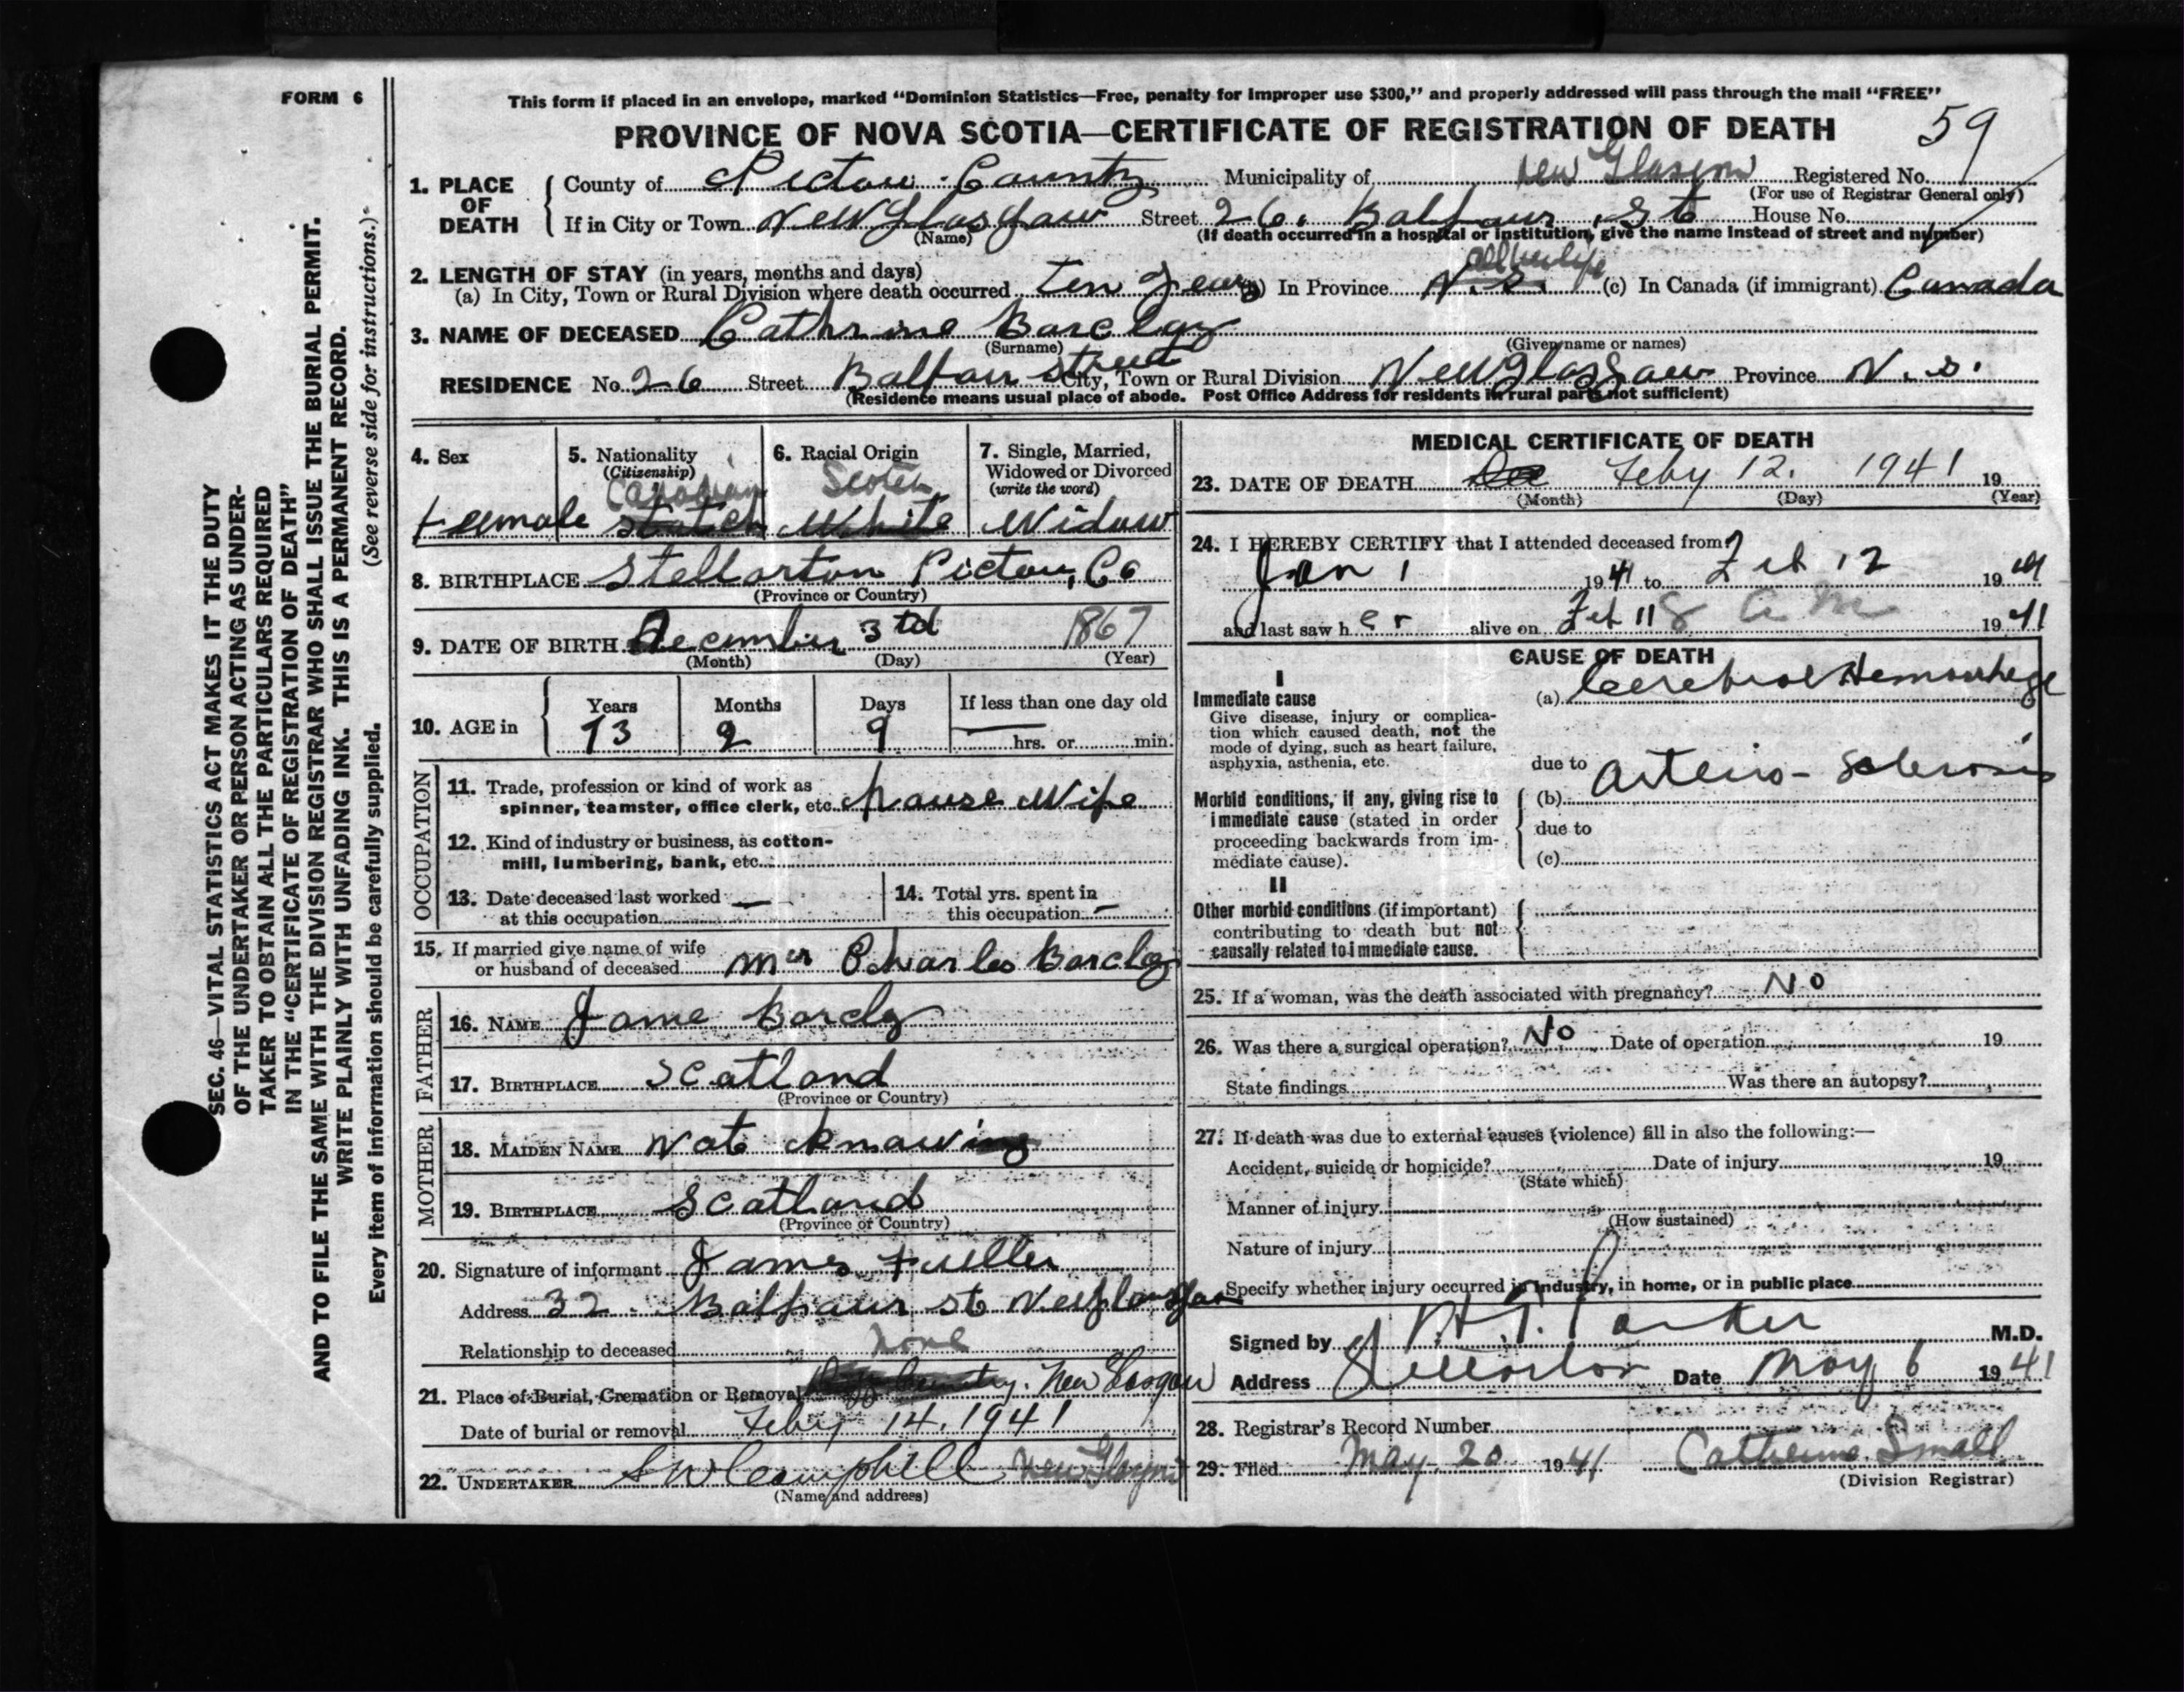 FORM 6
This form if placed in an envelope, marked “Dominion Statistics—Free, penalty for improper use $300,” and properly addressed will pass through the mail “FREE”
PROVINCE OF NOVA SCOTIA—CERTIFICATE OF REGISTRATION OF DEATH
59
1. PLACE OF DEATH
County of Pictou County Municipality of New Glasgow Registered No.
(For use of Registrar General only)
If in City or Town New Glasgaw Street 26. Balfaur St House No.
(Name) (If death occurred in a hospital or institution, give the name instead of street and number)
2. LENGTH OF STAY (in years, months and days)
all her life
(a) In City, Town or Rural Division where death occurred ten years (b) In Province N.S. (c) In Canada (if immigrant) Canada
3. NAME OF DECEASED Cathrine Barclay
(Surname) (Given name or names)
RESIDENCE No. 26 Street Balfaur street City, Town or Rural Division New Glasgaw Province N.S.
(Residence means usual place of abode. Post Office Address for residents in rural parts not sufficient)
4. Sex
female
5. Nationality
(Citizenship)
Canadian
Scotch
6. Racial Origin
Scotch
White
7. Single, Married, Widowed or Divorced
(write the word)
Widow
8. BIRTHPLACE Stellarton Pictou, Co
(Province or Country)
9. DATE OF BIRTH December 3td 1867
(Month) (Day) (Year)
10. AGE in
Years Months Days If less than one day old
73 2 9 hrs. or min.
OCCUPATION
11. Trade, profession or kind of work as
spinner, teamster, office clerk, etc. hause Wife
12. Kind of industry or business, as cotton-
mill, lumbering, bank, etc.
13. Date deceased last worked —
at this occupation
14. Total yrs. spent in
this occupation —
15. If married give name of wife
or husband of deceased Mrs Charles Barclay
FATHER
16. NAME Jame Barcly
17. BIRTHPLACE Scatland
(Province or Country)
MOTHER
18. MAIDEN NAME Not Knawing
19. BIRTHPLACE Scatland
(Province or Country)
20. Signature of informant James Fuller
Address 32 Balfaur st New Glasgaw
Relationship to deceased none
21. Place of Burial, Cremation or Removal New Glasgow
Date of burial or removal Feby 14, 1941
22. UNDERTAKER S W Campbell New Glasgow
(Name and address)
MEDICAL CERTIFICATE OF DEATH
23. DATE OF DEATH Dec Feby 12. 1941 19
(Month) (Day) (Year)
24. I HEREBY CERTIFY that I attended deceased from
Jan 1 1941 to Feb 12 1941
and last saw her alive on Feb 11 8 AM 1941
CAUSE OF DEATH
I
Immediate cause
Give disease, injury or complica-
tion which caused death, not the
mode of dying, such as heart failure,
asphyxia, asthenia, etc.
(a) Cerebral Hemorrhage
due to
Morbid conditions, if any, giving rise to
immediate cause (stated in order
proceeding backwards from im-
mediate cause).
(b) Arterio-Sclerosis
due to
(c)
II
Other morbid conditions (if important)
contributing to death but not
causally related to immediate cause.
25. If a woman, was the death associated with pregnancy? No
26. Was there a surgical operation? No Date of operation 19
State findings Was there an autopsy?
27. If death was due to external causes (violence) fill in also the following:—
Accident, suicide or homicide? Date of injury 19
(State which)
Manner of injury
(How sustained)
Nature of injury
Specify whether injury occurred in industry, in home, or in public place
Signed by H.T. Parker M.D.
Address Stellarton Date May 6 1941
28. Registrar’s Record Number
29. Filed May 20 1941 Catherine Small
(Division Registrar)
SEC. 46—VITAL STATISTICS ACT MAKES IT THE DUTY
OF THE UNDERTAKER OR PERSON ACTING AS UNDER-
TAKER TO OBTAIN ALL THE PARTICULARS REQUIRED
IN THE “CERTIFICATE OF REGISTRATION OF DEATH”
AND TO FILE THE SAME WITH THE DIVISION REGISTRAR WHO SHALL ISSUE THE BURIAL PERMIT.
WRITE PLAINLY WITH UNFADING INK. THIS IS A PERMANENT RECORD.
Every item of information should be carefully supplied. (See reverse side for instructions.)